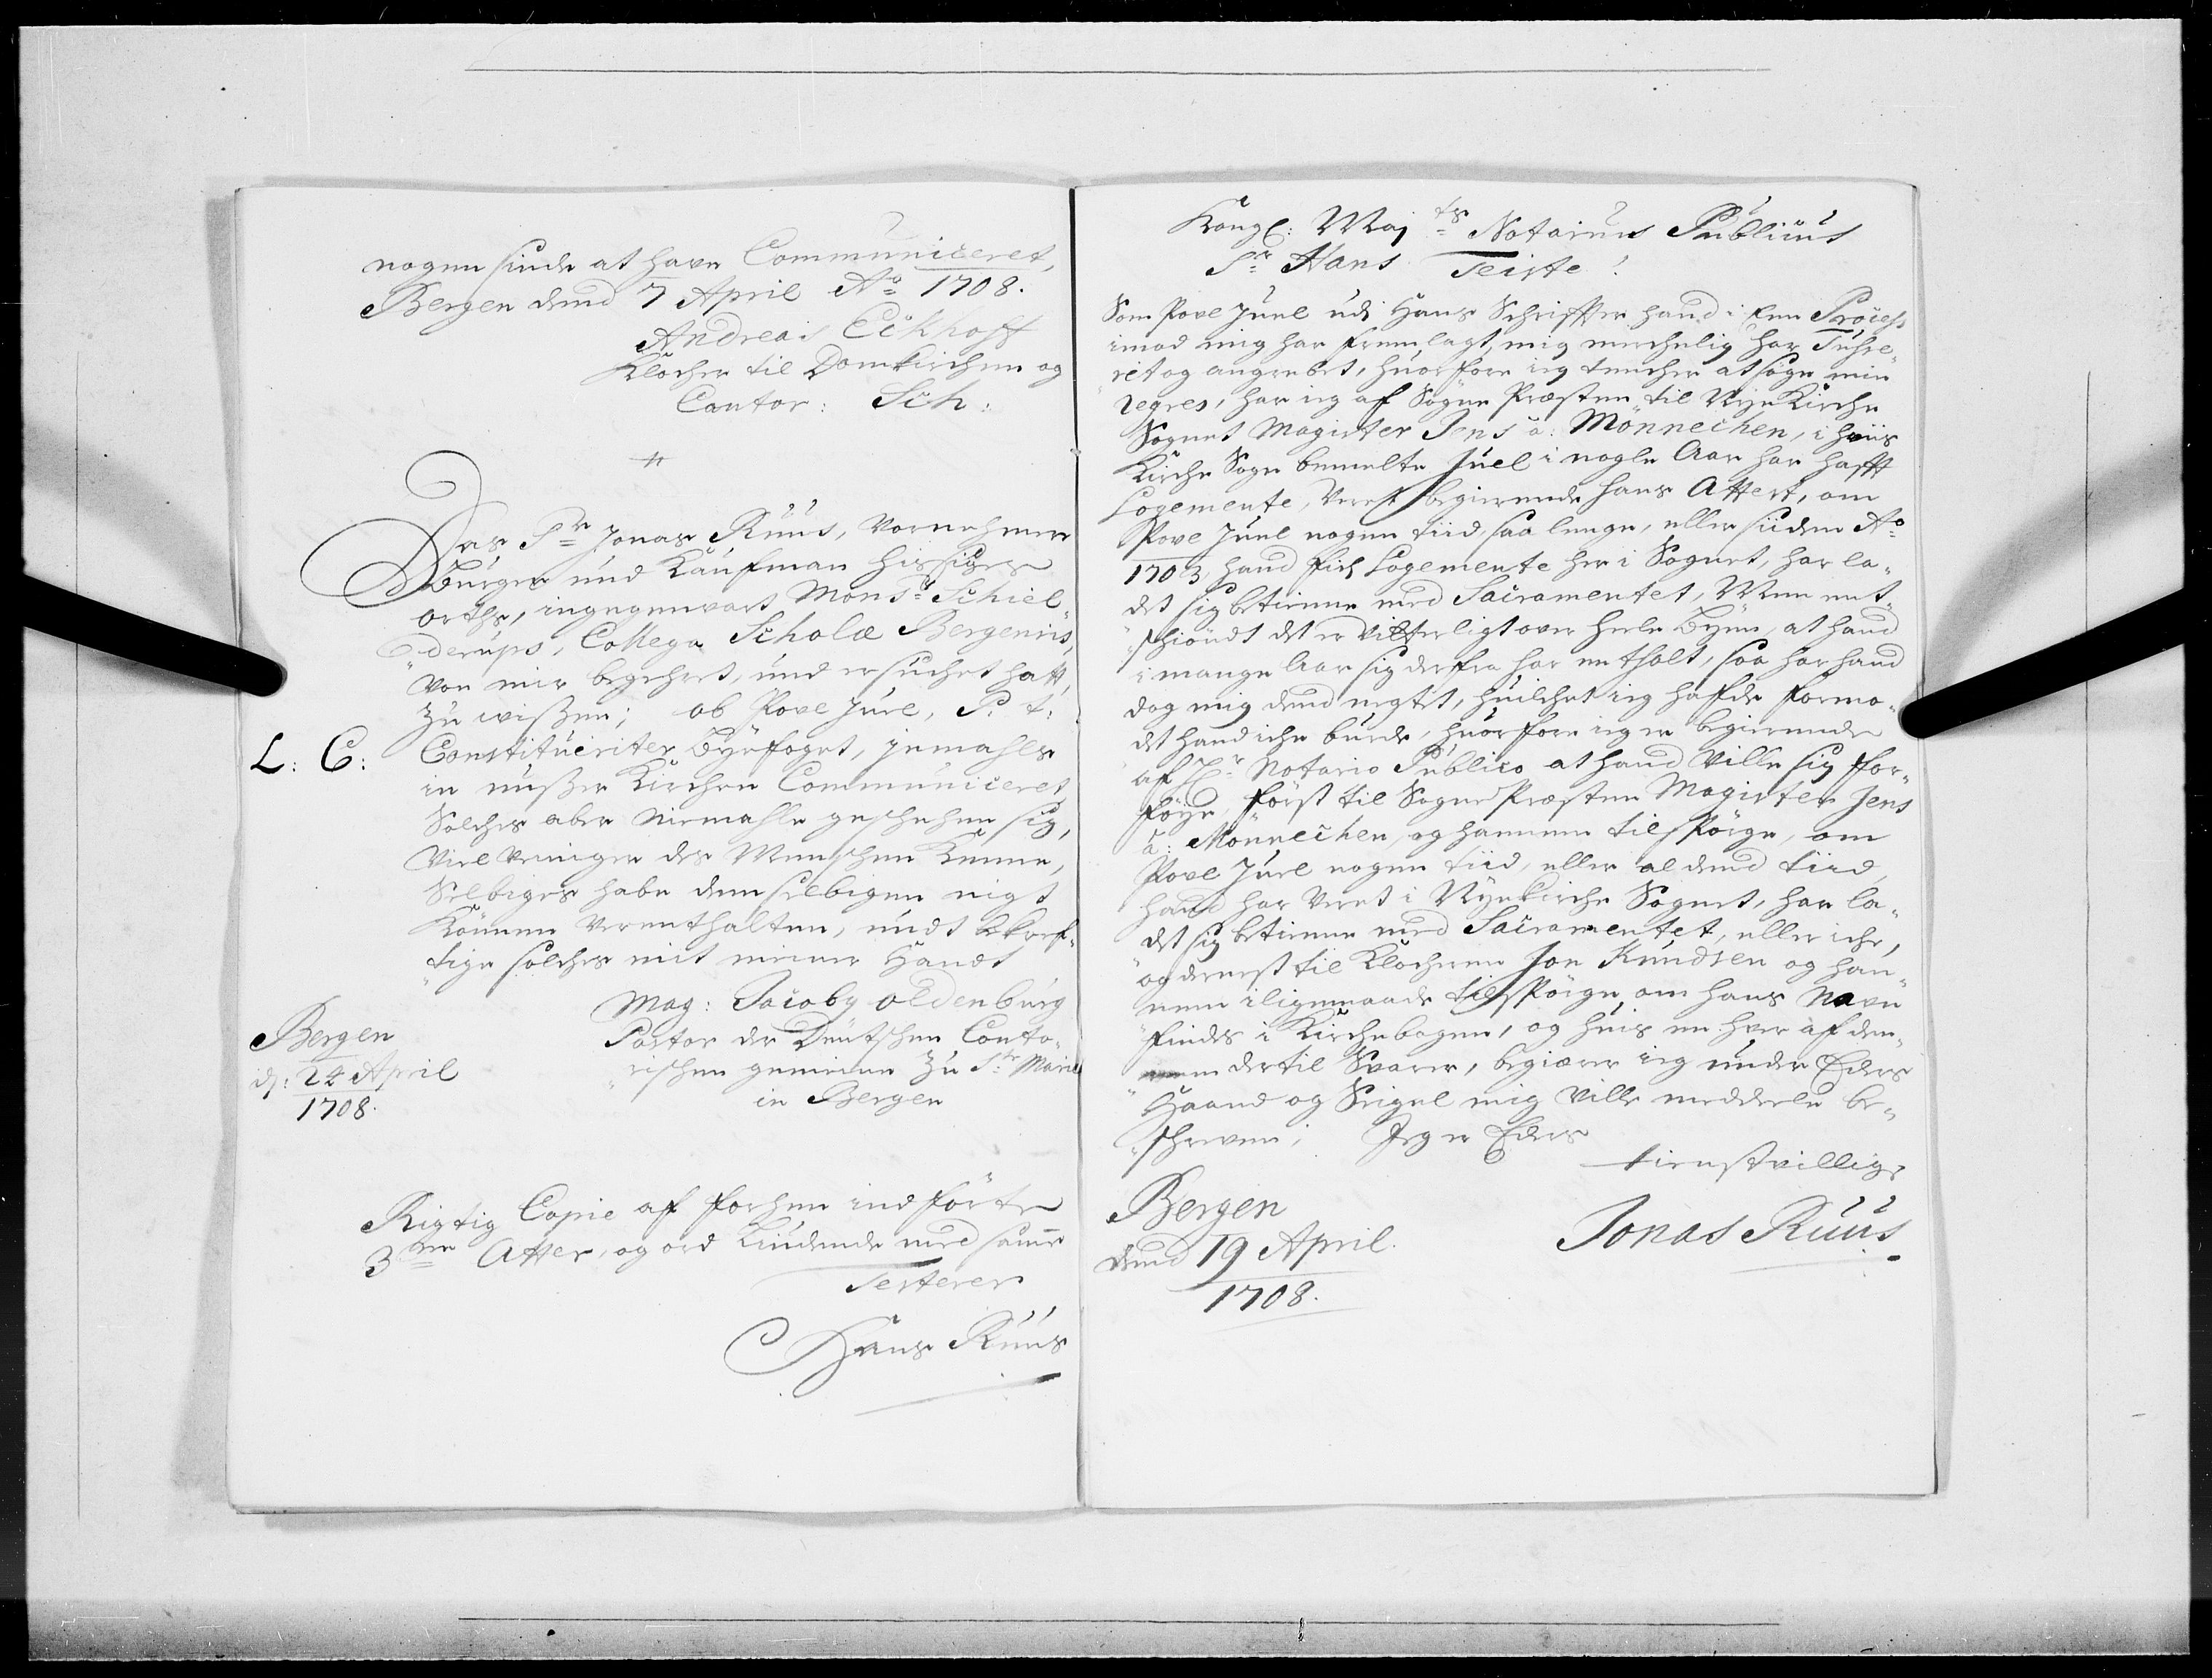 nogen sinde at have Communiceret,
Bergen dend 7 April Aº 1708.
Andreas Eckhoff
Klocher til Domkirchen og
Cantor: Sch:
Das Sr Jonas Ruus, Vornehmer
Bürger und Kaufman hissiges
orths, ingegenwart Monsr Schiel-
derups, Collega Scholæ Bergensis,
Von mir begehret, und ersuchet hatt,
Zu wissen; ob Povel Juel, P. t:
L: C: Constitueriter Byefoget, jemahls
in unsser Kirchen Communiceret,
Solches aber Niemahls geschehen sig,
Viel weniger des Menschen Kenne,
Selbiges habe dem selbigen nigt
Können Verenthalten, undt bekref-
tige solches mit meiner Handt
Mag: Jacoby oldenburg
Bergen Pastor der Deutschen Conto-
d: 24 April rischen gemeine zu St Marie
1708. in Bergen
Rigtig Copie af forhen indförte
3de Atter, og ord Liudende med samme
Testerer
Hans Ruus
Kongl: Majts Notarius Publicus
Sr Hans Teiste!
Som Povel Juel udi Hans Schriffter hand i den Process
imod mig har fremlagt, mig merchelig har Tuche-
ret og angrebet, huorfore ieg tencher at söge min
regres, har ieg af Sogne Præsten til Nye Kirche
Sognet Magister Jens á: Mönnechen, i hviis
Kirche Sogn bemelte Juel i nogle Aar har hafft
Logemente, Verst begierende hans Attest, om
Povel Juel nogen tiid saa lenge, eller siiden Aº
1703, hand fich Logemente her i Sognet, har la-
det sig betienne med Sacramentet, Men ent-
schiöndt det er vitterligt over heele Byen, at hand
i mange Aar sig derfra har entholt, saa har hand
dog mig dend negtet, huilchet ieg haffde formo-
det hand iche burde, huorfore ieg er begierende
af Hr Notario Publico at hand Ville sig for-
föye först til Sogne Præsten Magister Jens
á: Mönnechen, og hannem tilspörge, om
Povel Juel nogen tiid, eller al dend tiid,
hand har Veret i Nyekirche Sognet, har la-
det sig betienne med Sacramentet, eller iche,
og dernest til Klocheren Jon Knudsen og han-
nem iligemaade tilspörge, om hans Navn
findes i Kirchebogen, og huis en hver af den-
nem dertil Svarer, begiærer ieg under Eders
Haand og Seigel mig Ville meddeele be-
schreven; Jeg er Eders
tienstvillige
Bergen
dend 19 April. Jonas Ruus
1708.